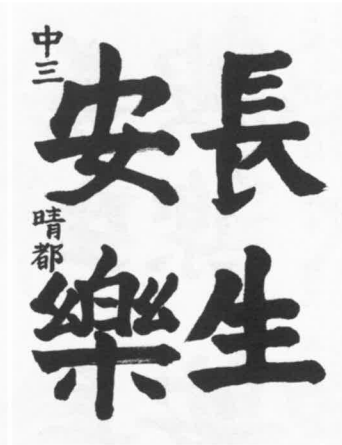 長生
安樂
中三 晴都